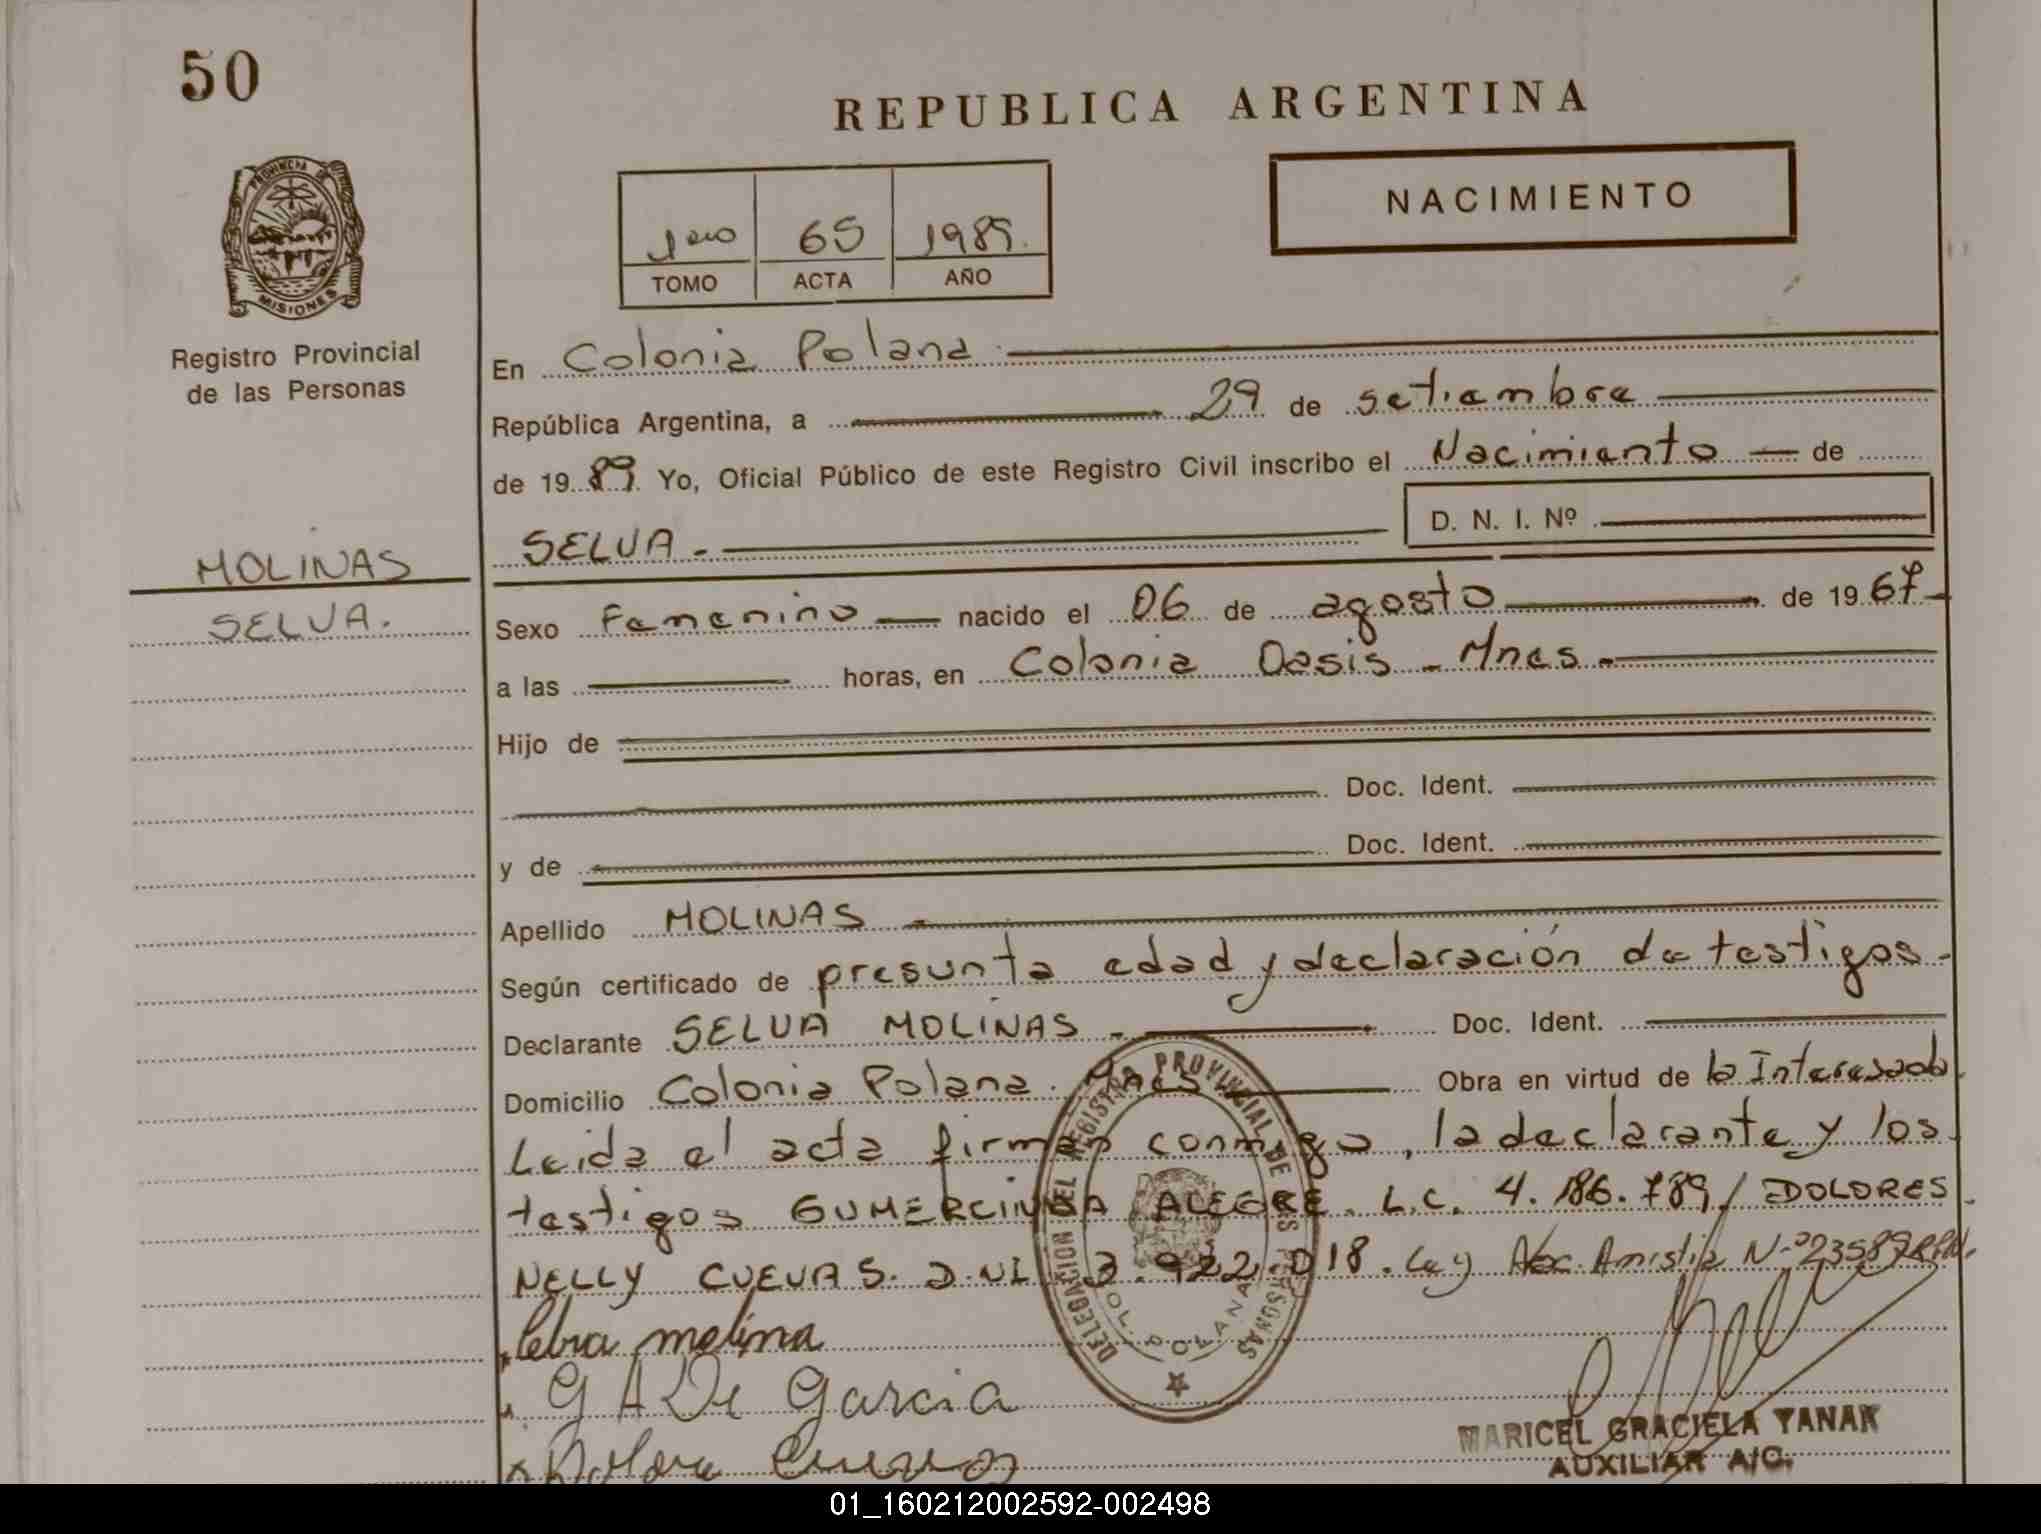 50
REPUBLICA ARGENTINA
PROVINCIA DE
MISIONES
Registro Provincial
de las Personas
1ero 65 1989.
TOMO ACTA AÑO
NACIMIENTO
En Colonia Polana
República Argentina, a 29 de setiembre
de 1989 Yo, Oficial Público de este Registro Civil inscribo el Nacimiento de
SELVA.
D. N. I. Nº
MOLINAS
SELVA.
Sexo Femenino nacido el 06 de agosto de 1967
a las horas, en Colonia Oasis - Mnes -
Hijo de
Doc. Ident.
y de Doc. Ident.
Apellido MOLINAS
Según certificado de presunta edad y declaración de testigos.
Declarante SELVA MOLINAS - Doc. Ident.
Domicilio Colonia Polana. Mnes Obra en virtud de la Interesada
Leida el acta firman conmigo, la declarante y los
testigos GUMERCINDA ALEGRE. L.C. 4.186.789/ DOLORES
NELLY CUEVAS. D.NI. 922.018. Ley Nac. Amistia N-º 23587
molina
G A De Garcia
DELEGACION DEL REGISTRO PROVINCIAL DE LAS PERSONAS
COL. POLANA
MARICEL GRACIELA YANAK
AUXILIAR A/C.
01_160212002592-002498